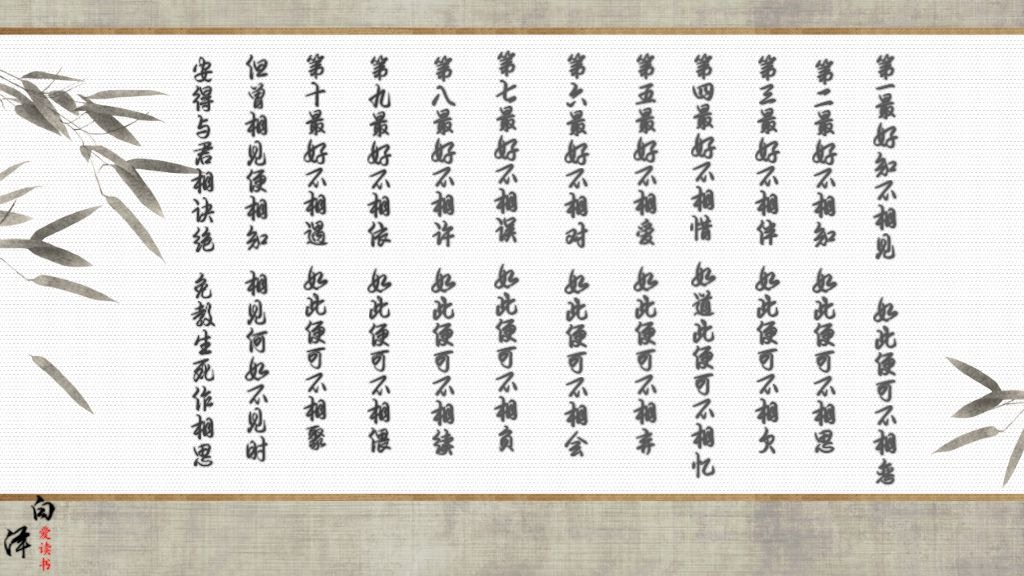 第一最好知不相见 如此便可不相恋
第二最好不相知 如此便可不相思
第三最好不相伴 如此便可不相欠
第四最好不相惜 如道此便可不相忆
第五最好不相爱 如此便可不相弃
第六最好不相对 如此便可不相会
第七最好不相误 如此便可不相负
第八最好不相许 如此便可不相续
第九最好不相依 如此便可不相偎
第十最好不相遇 如此便可不相聚
但曾相见便相知 相见何如不见时
安得与君相诀绝 免教生死作相思
白泽
爱读书